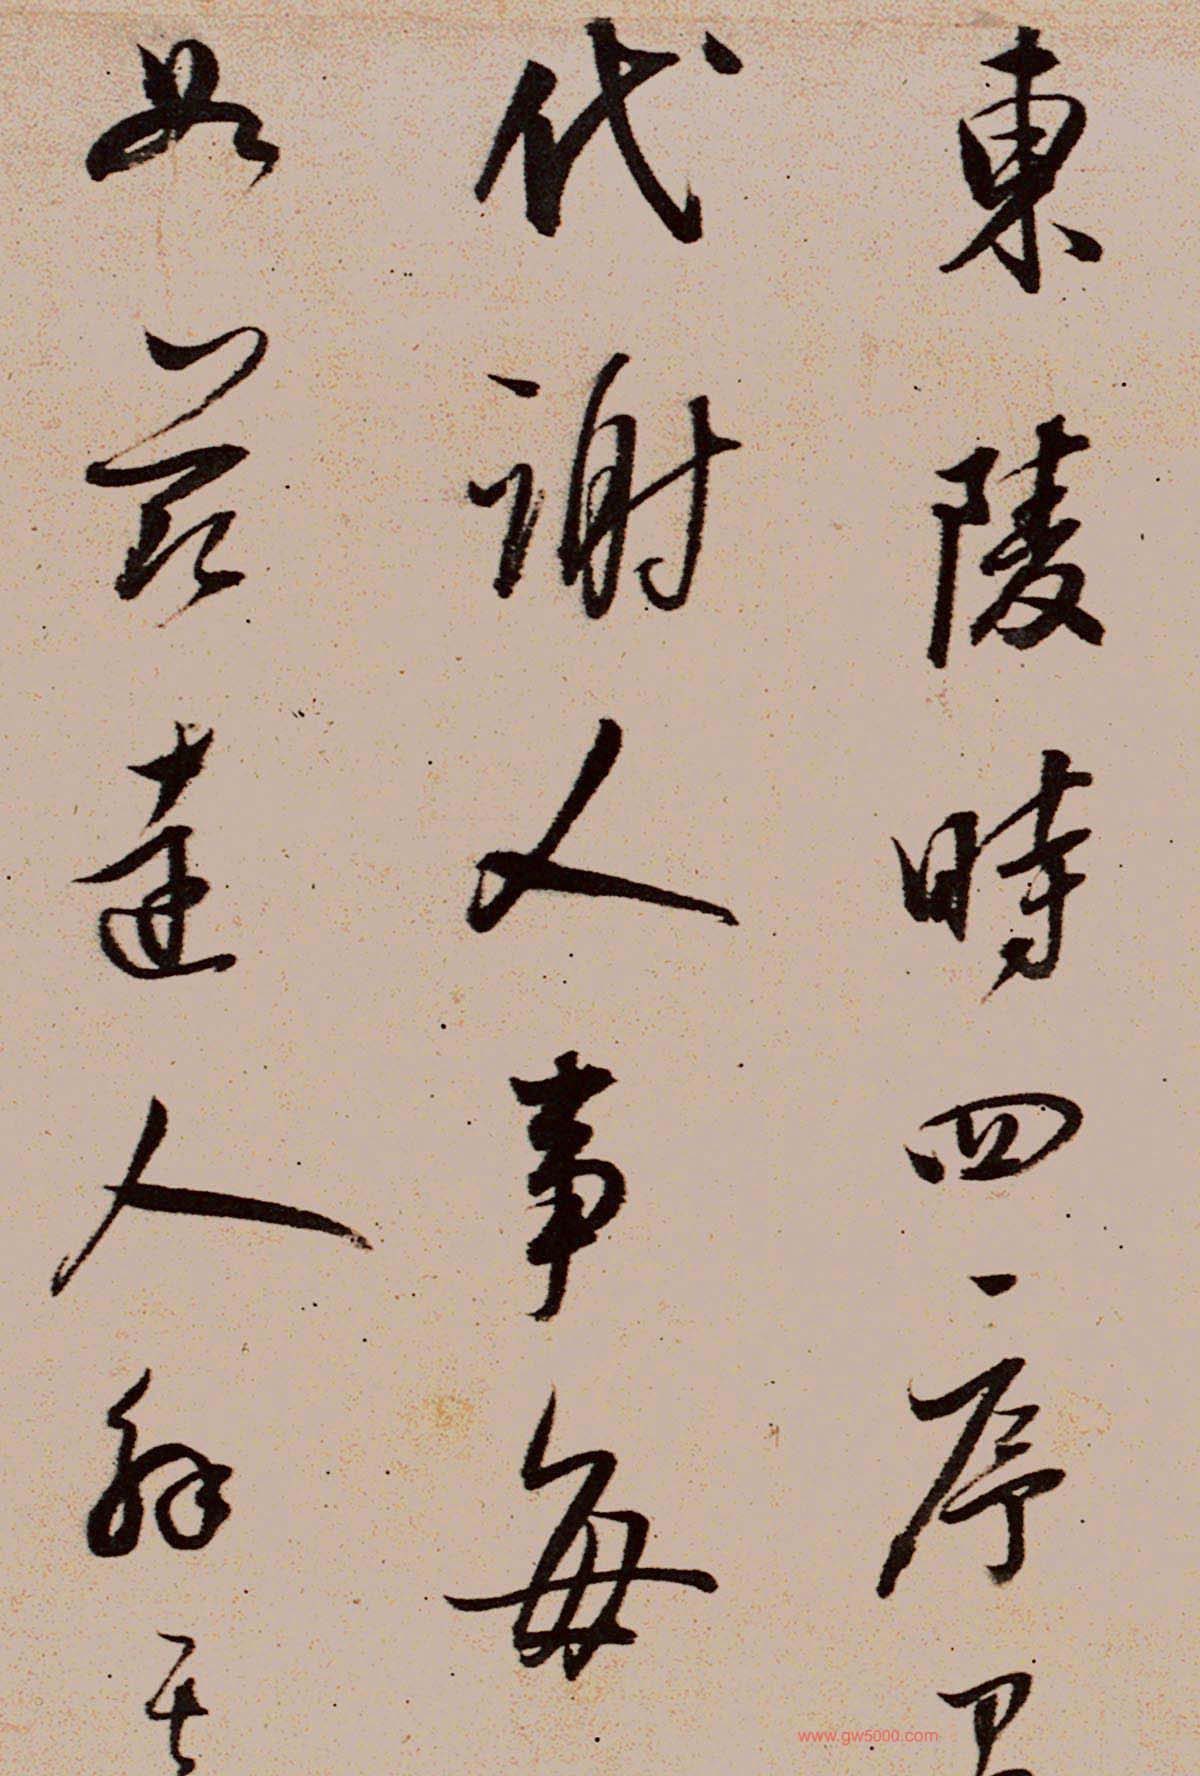 東陵時四序
代謝人事每
如茲達人解其
www.gw5000.com